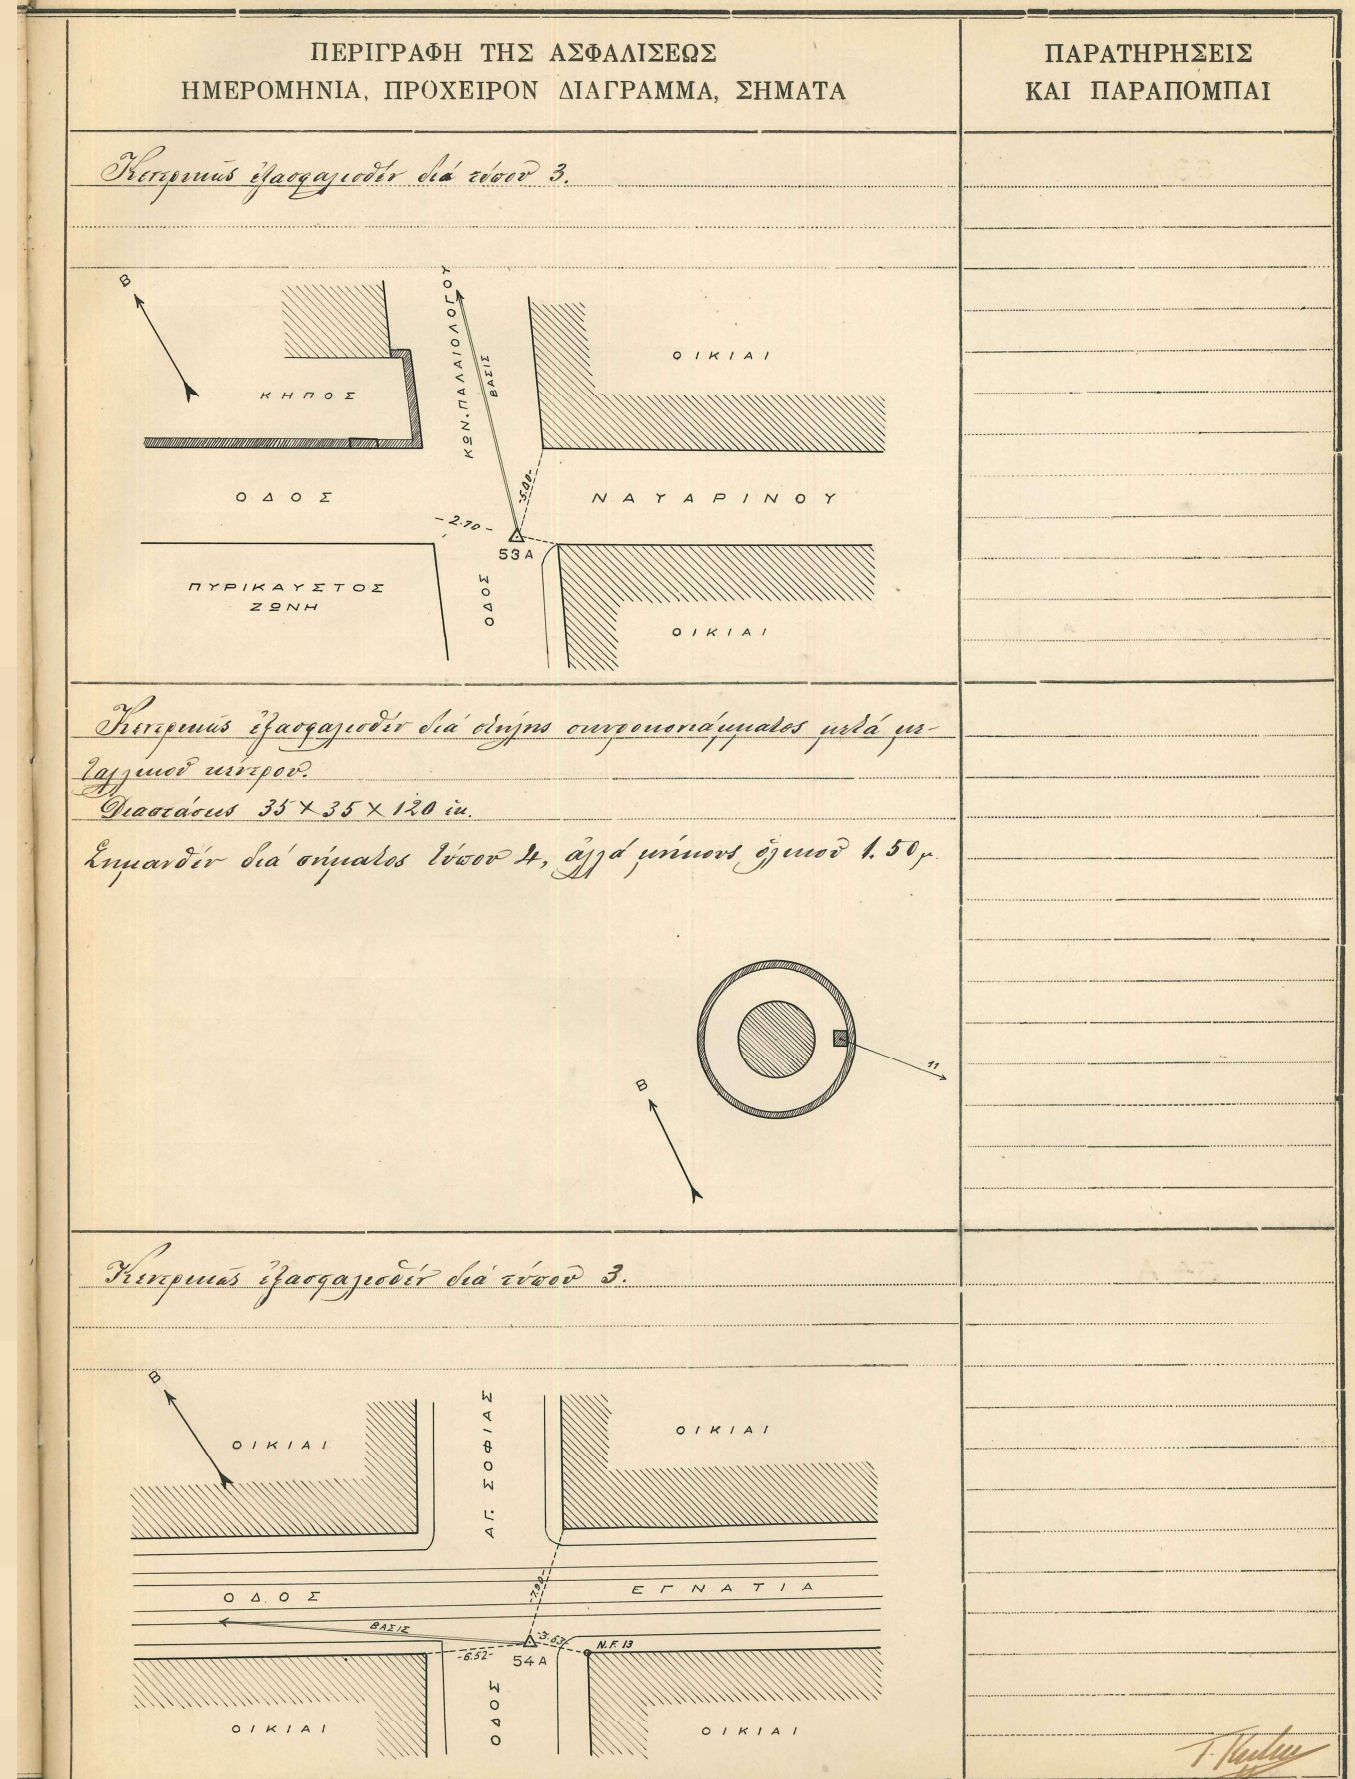 ΠΕΡΙΓΡΑΦΗ ΤΗΣ ΑΣΦΑΛΙΣΕΩΣ
ΗΜΕΡΟΜΗΝΙΑ, ΠΡΟΧΕΙΡΟΝ ΔΙΑΓΡΑΜΜΑ, ΣΗΜΑΤΑ
ΠΑΡΑΤΗΡΗΣΕΙΣ
ΚΑΙ ΠΑΡΑΠΟΜΠΑΙ
Κεντρικῶς ἐξασφαλισθέν διά τύπου 3.
Β
ΚΩΝ. ΠΑΛΑΙΟΛΟΓΟΥ
ΒΑΣΙΣ
ΟΙΚΙΑΙ
ΚΗΠΟΣ
ΟΔΟΣ
ΝΑΥΑΡΙΝΟΥ
-5.00-
-2.70-
53Α
ΠΥΡΙΚΑΥΣΤΟΣ
ΖΩΝΗ
ΟΔΟΣ
ΟΙΚΙΑΙ
Κεντρικῶς ἐξασφαλισθέν διά στήλης σκυροκονιάμματος μετά με-
ταλλικοῦ κέντρου.
Διαστάσεις 35 × 35 × 120 ἑκ.
Σημανθέν διά σήματος τύπου 4, ἀλλά μήκους ὁλικοῦ 1.50 μ.
11
Β
Κεντρικῶς ἐξασφαλισθέν διά τύπου 3.
Β
ΟΙΚΙΑΙ
ΑΓ. ΣΟΦΙΑΣ
ΟΙΚΙΑΙ
ΟΔΟΣ
ΕΓΝΑΤΙΑ
ΒΑΣΙΣ
-3.63-
N.F. 13
-6.52-
54Α
ΟΔΟΣ
ΟΙΚΙΑΙ
ΟΙΚΙΑΙ